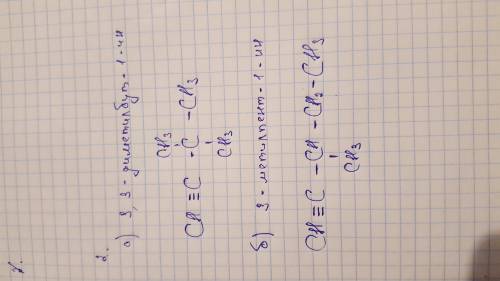 2.
а) 3,3-диметилбут-1-ин
CH3
CH≡C-C-CH3
CH3
б) 3-метилпент-1-ин
CH≡C-CH-CH2-CH3
CH3